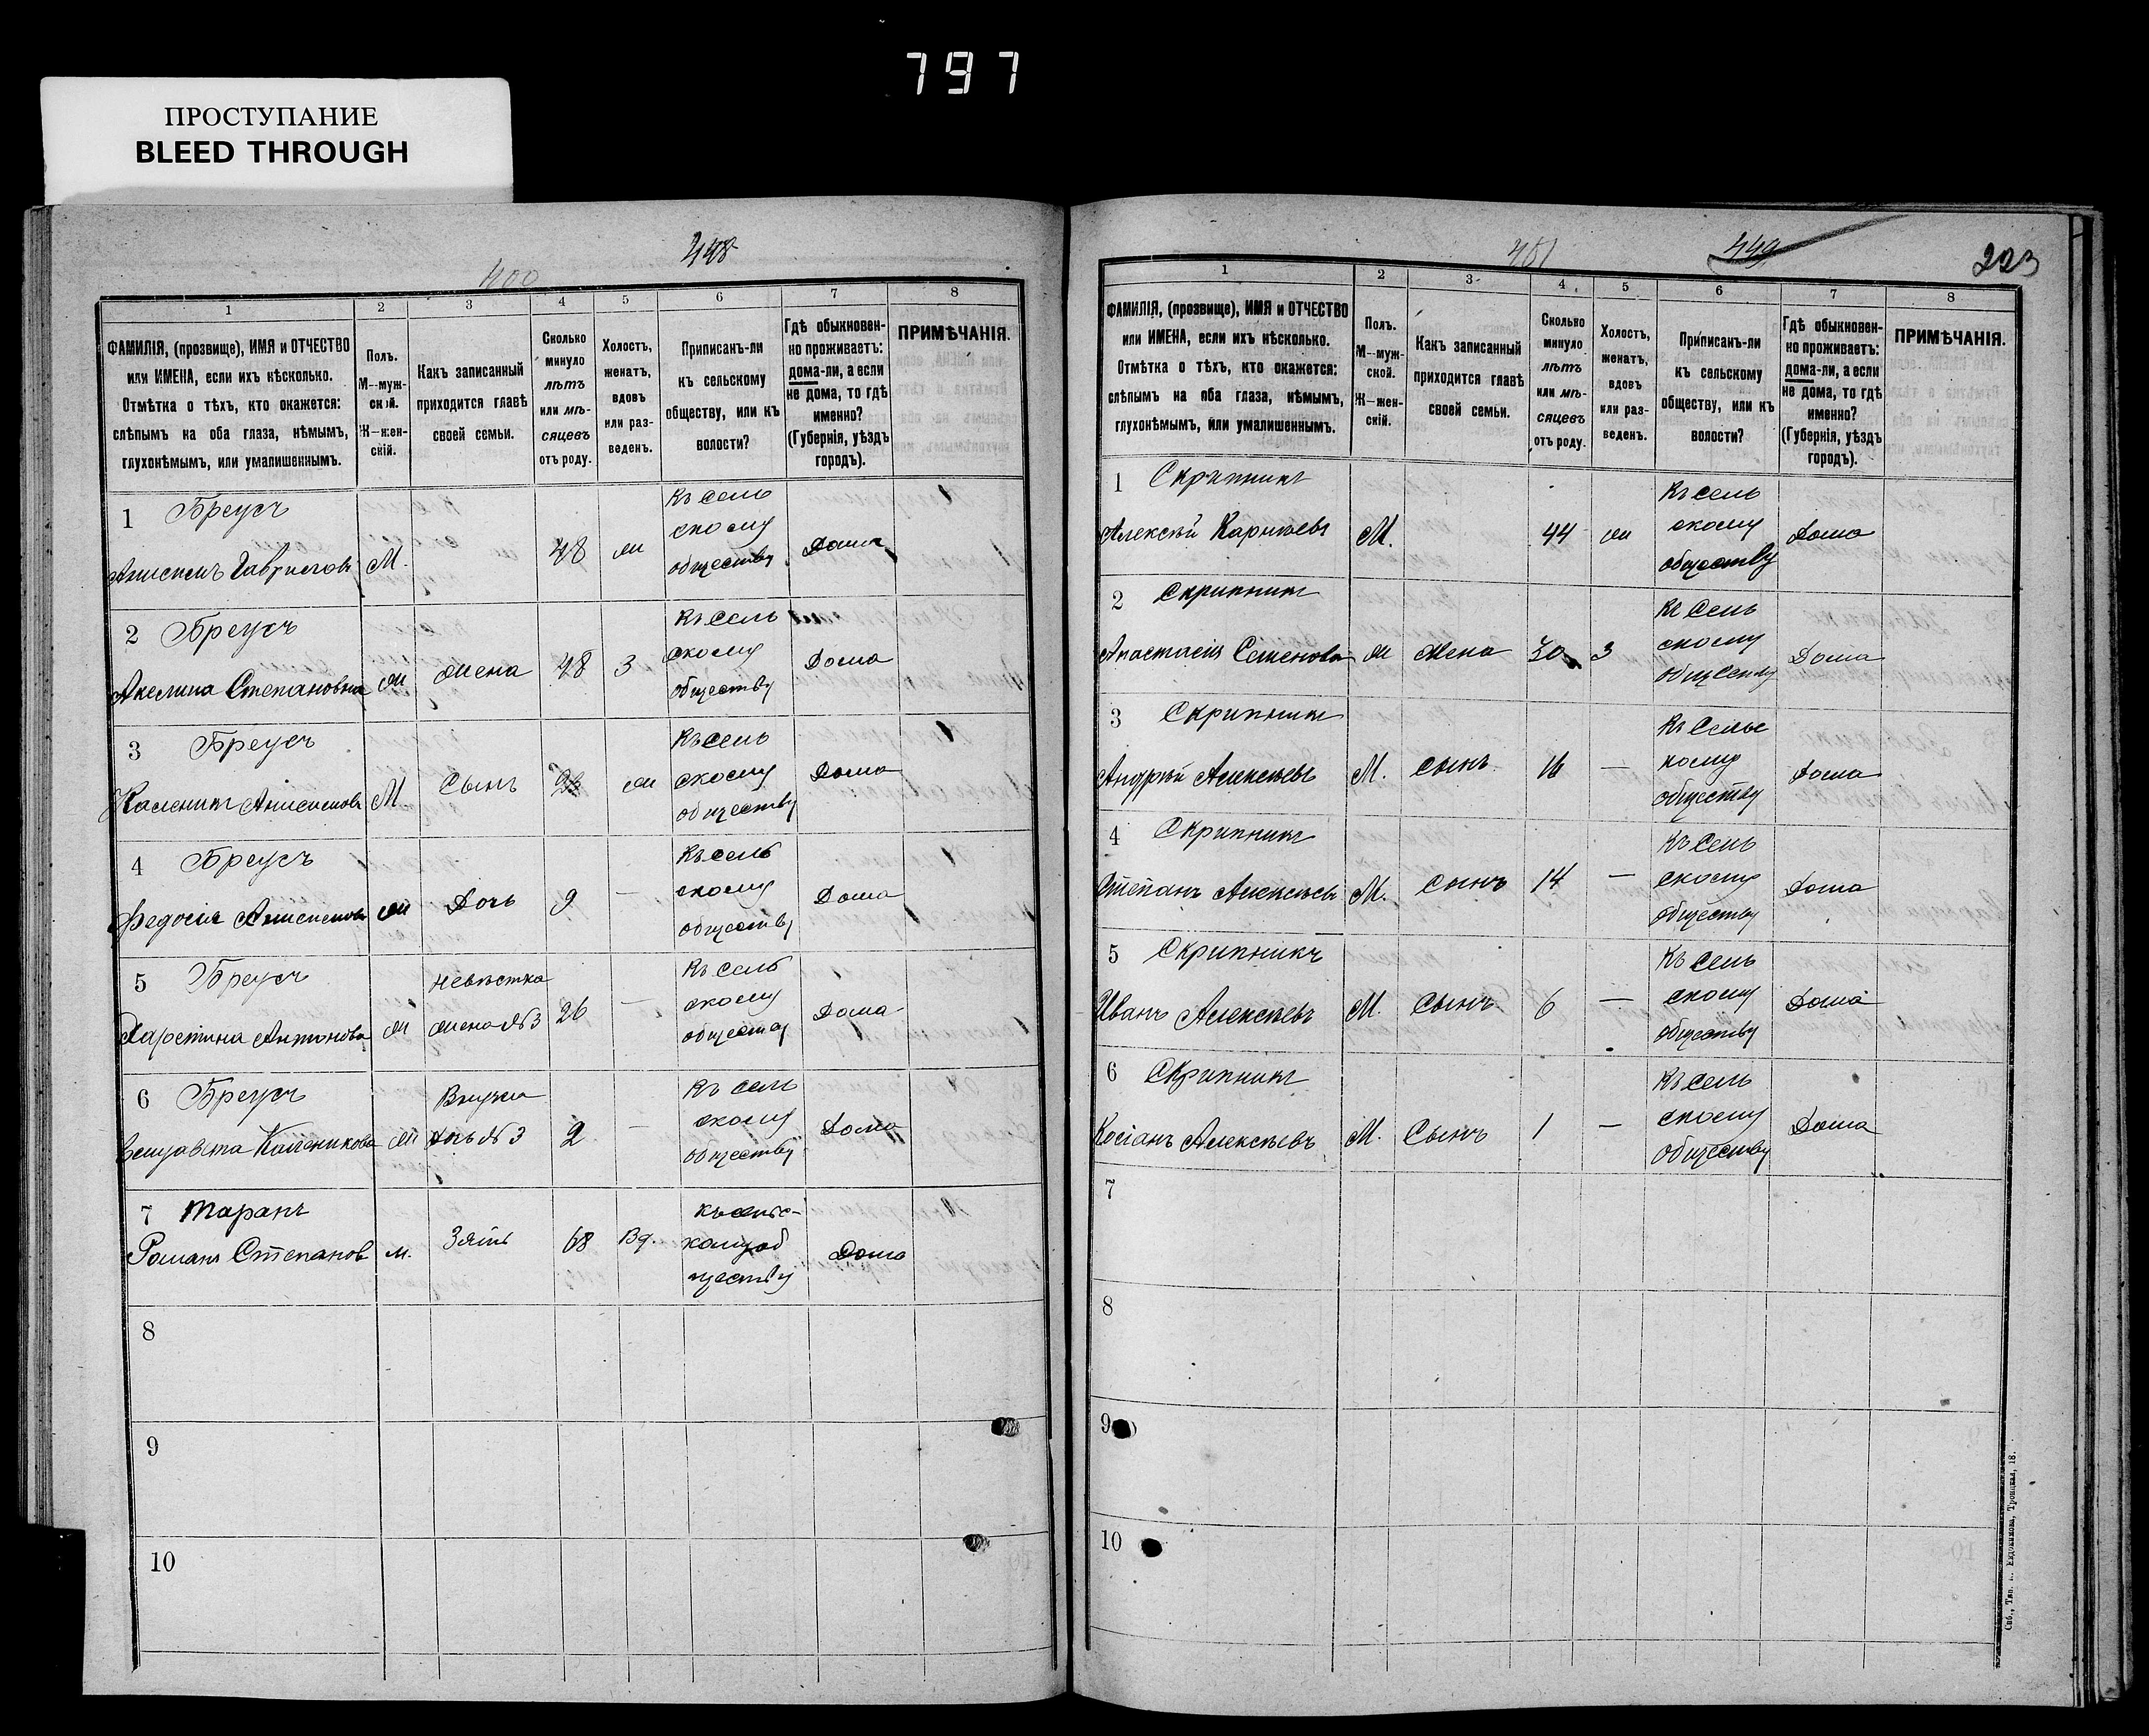 797
ПРОСТУПАНИЕ
BLEED THROUGH
448
400
1 2 3 4 5 6 7 8
ФАМИЛІЯ, (прозвище), ИМЯ и ОТЧЕСТВО
или ИМЕНА, если ихъ нѣсколько.
Отмѣтка о тѣхъ, кто окажется:
слѣпымъ на оба глаза, нѣмымъ,
глухонѣмымъ, или умалишеннымъ.
Полъ.
М--муж-
ской.
Ж--жен-
скій.
Какъ записанный
приходится главѣ
своей семьи.
Сколько
минуло
лѣтъ
или мѣ-
сяцевъ
отъ роду.
Холостъ,
женатъ,
вдовъ
или раз-
веденъ.
Приписанъ-ли
къ сельскому
обществу, или къ
волости?
Гдѣ обыкновен-
но проживаетъ:
дома-ли, а если
не дома, то гдѣ
именно?
(Губернія, уѣздъ
городъ).
ПРИМѢЧАНІЯ.
1 Бреусъ
Анисимъ Гавриловъ М. 48 ж
Къ сель
скому
обществу
Дома
2 Бреусъ
Акелина Степановна ж жена 48 З
Къ сель
скому
обществу
Дома
3 Бреусъ
Каленикъ Анисимовъ М Сынъ ж
Къ сель
скому
обществу
Дома
4 Бреусъ
Федосія Анисимова ж Дочь 9 —
Къ сель
скому
обществу
Дома
5 Бреусъ
Харетина Антонова ж
невѣстка
жена №3
26 —
Къ сель
скому
Дома
6 Бреусъ
Елизавета Каленикова ж
Внучка
дочь №3
2 —
Къ сель
скому
обществу
Дома
7 Таранъ
Романъ Степанов м. Зять 68 Вд.
кому об
ществу
Дома
8
9
10
401
449
223
1 2 3 4 5 6 7 8
ФАМИЛІЯ, (прозвище), ИМЯ и ОТЧЕСТВО
или ИМЕНА, если ихъ нѣсколько.
Отмѣтка о тѣхъ, кто окажется:
слѣпымъ на оба глаза, нѣмымъ,
глухонѣмымъ, или умалишеннымъ.
Полъ.
М--муж-
ской.
Ж--жен-
скій.
Какъ записанный
приходится главѣ
своей семьи.
Сколько
минуло
лѣтъ
или мѣ-
сяцевъ
отъ роду.
Холостъ,
женатъ,
вдовъ
или раз-
веденъ.
Приписанъ-ли
къ сельскому
обществу, или къ
волости?
Гдѣ обыкновен-
но проживаетъ:
дома-ли, а если
не дома, то гдѣ
именно?
(Губернія, уѣздъ
городъ).
ПРИМѢЧАНІЯ.
1 Скрипникъ
Алексѣй Карпѣевъ М. 44 ж
Къ сель
скому
обществу
Дома
2 Скрипникъ
Анастасія Семенова ж жена 30 З
Къ сель
скому
обществу
Дома
3 Скрипникъ
Андрѣй Алексѣевъ М. сынъ 16 —
кому
обществу
Дома
4 Скрипникъ
Степанъ Алексѣевъ М. сынъ 14 —
Къ сель
скому
обществу
Дома
5 Скрипникъ
Иванъ Алексѣевъ М. Сынъ 6 —
Къ сель
скому
обществу
Дома
6 Скрипникъ
Косіанъ Алексѣевъ М. Сынъ 1 —
Къ сель
скому
обществу
Дома
7
8
9
10